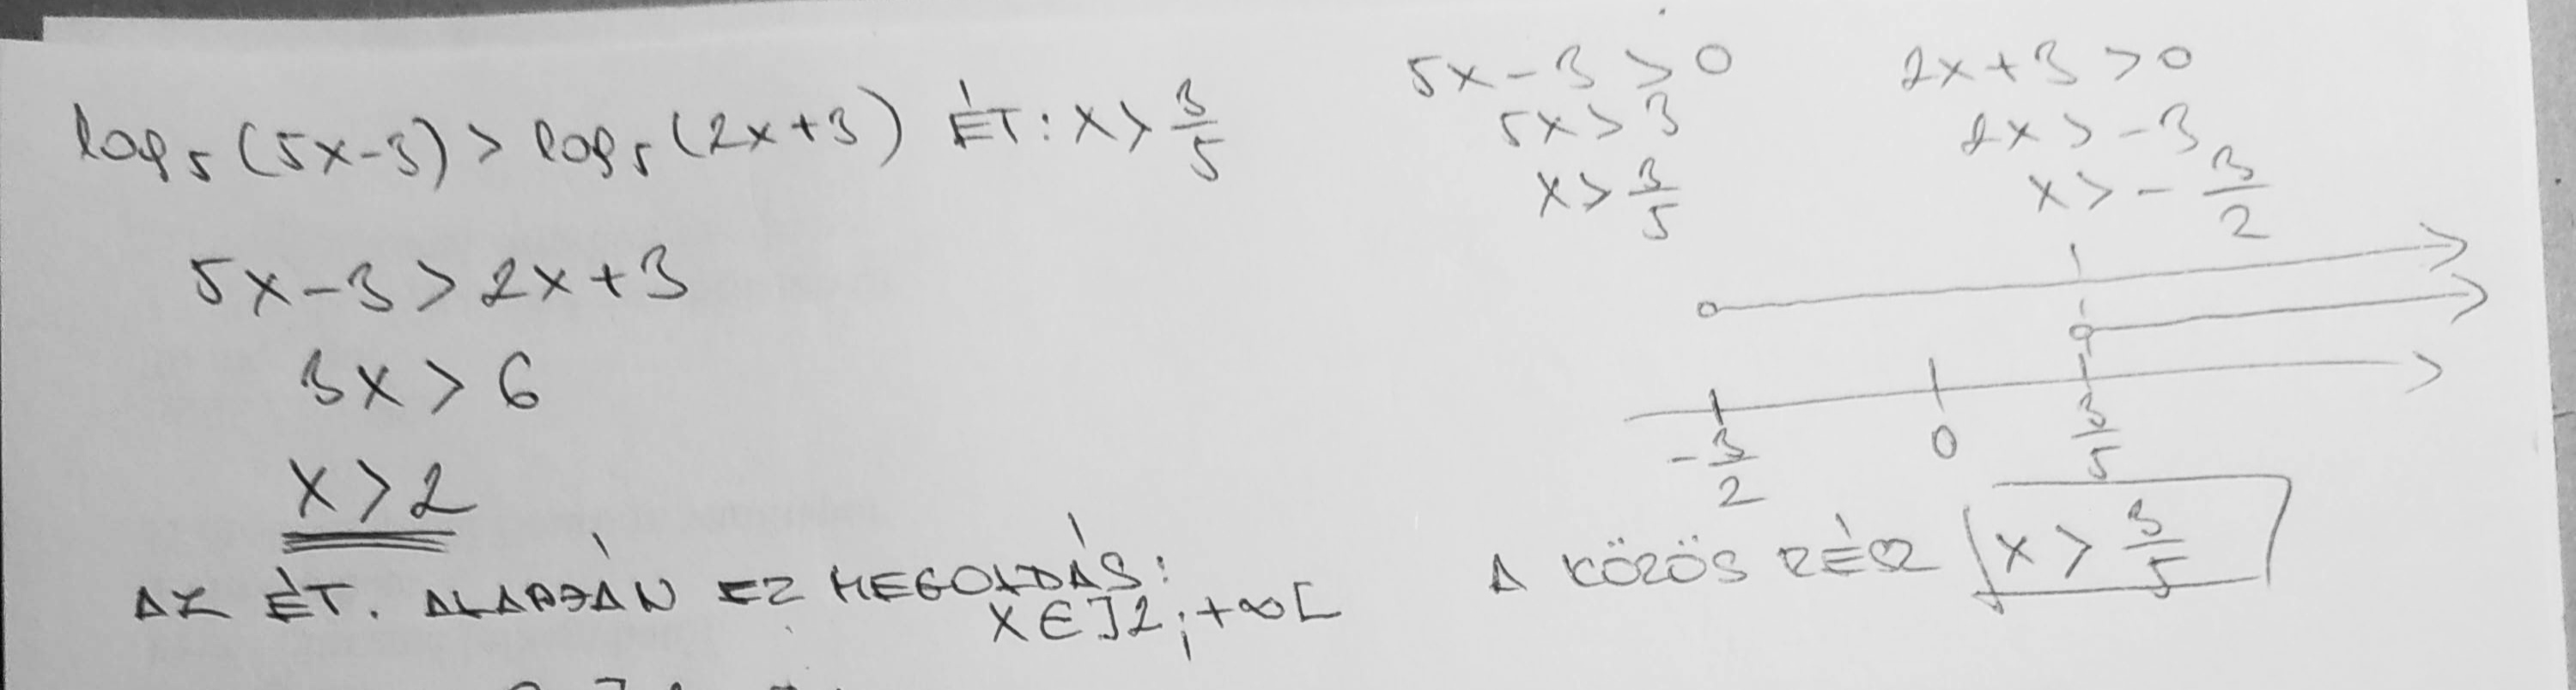 log₅(5x-3) > log₅(2x+3) ÉT: x > 3/5
5x-3 > 2x+3
3x > 6
x > 2
AZ ÉT. ALAPJÁN EZ MEGOLDÁS:
x∈]2;+∞[
5x-3 > 0
5x > 3
x > 3/5
2x+3 > 0
2x > -3
x > -3/2
-3/2 0 3/5
A KÖZÖS RÉSZ x > 3/5